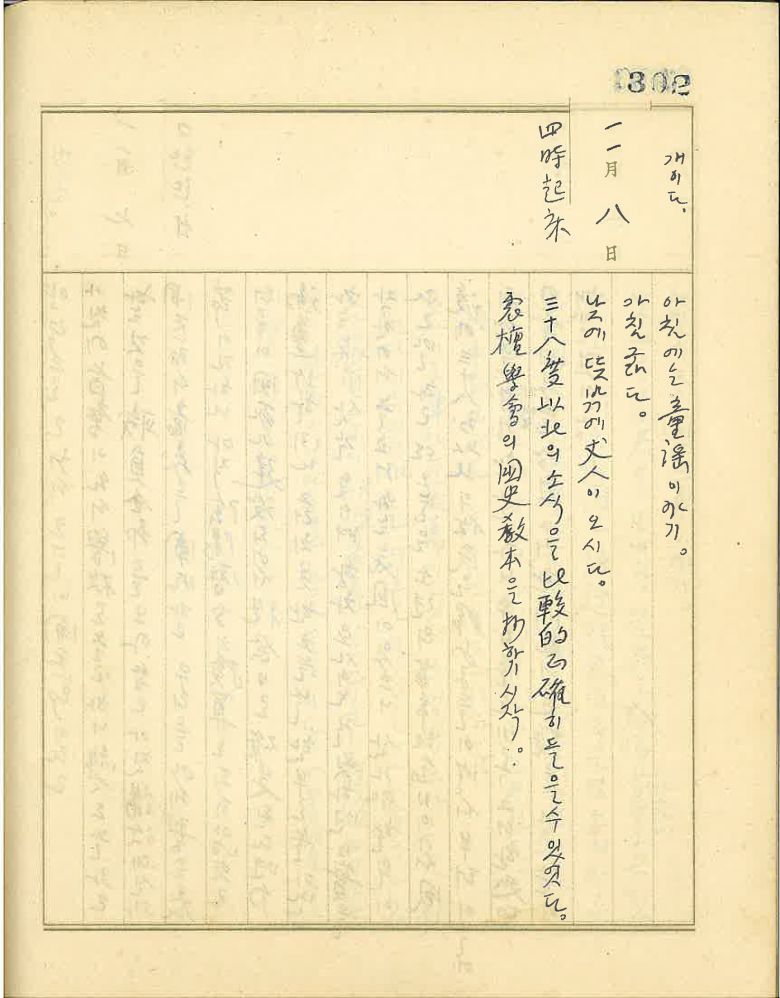 302
개이다。
一一月八日
四時起床
아침에는 童謠이야기。
아침
낮에 뜻밖에 丈人이 오시다。
三十八度以北의 소식을 比較的 正確히 들을 수 있었다。
震檀學會의 國史敎本을 시작。